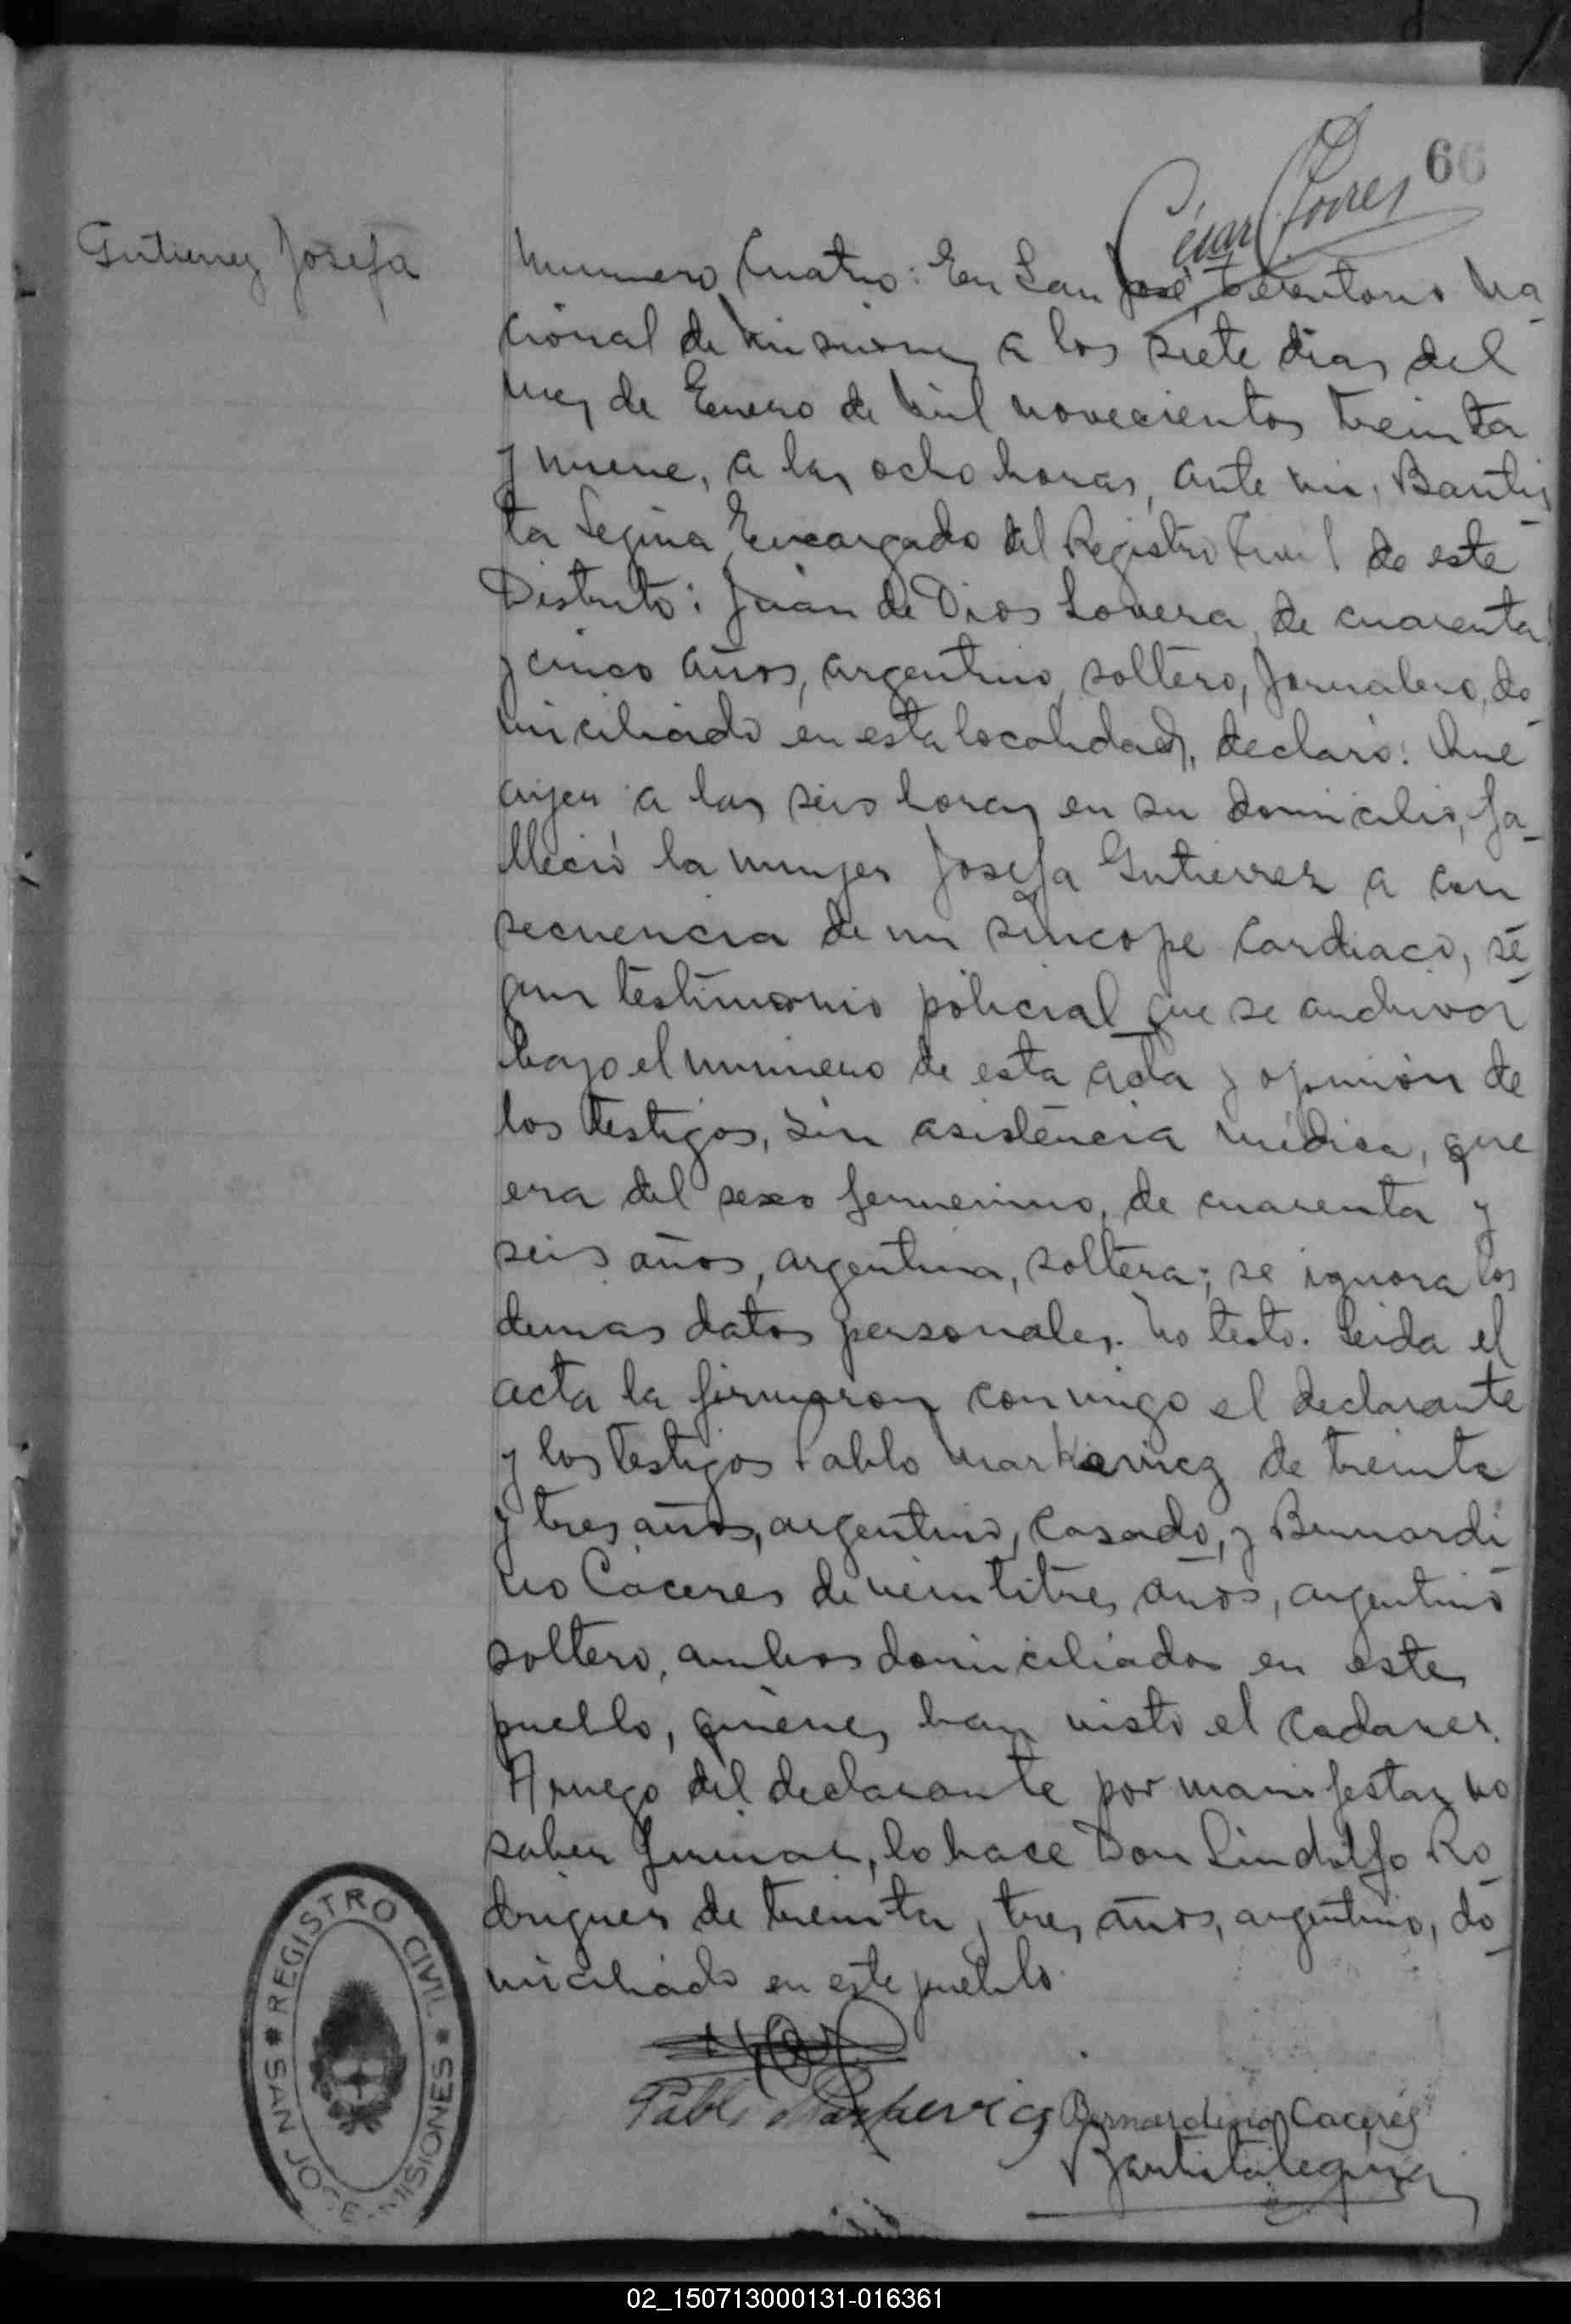 66
César Torres
Gutierrez Josefa
Numero Cuatro: En San José, Territorio Na-
cional de Misiones a los siete dias del
mes de Enero de Mil novecientos treinta
y nueve, a las ocho horas, ante mi, Bautis-
ta Legina, Encargado del Registro Civil de este
Distrito: Juan de Dios Lovera, de cuarenta
y cinco años, argentino, soltero, Jornalero, do-
miciliado en esta localidad, declaró: Que
ayer a las seis horas en su domicilio, fa-
lleció la mujer Josefa Gutierrez a con
secuencia de un síncope Cardiaco, se-
gun testimonio policial que se archiva
bajo el numero de esta acta y opinión de
los testigos, sin asistencia médica, que
era del sexo femenino, de cuarenta y
seis años, argentina, soltera; se ignora los
demas datos personales. No testó. Leida el
acta la firmaron conmigo el declarante
y los testigos Pablo Markievicz de treinta
y tres años, argentino, Casado, y Bernardi
no Cáceres de veintitres años, argentino
soltero, ambos domiciliados en este
pueblo, quienes han visto el cadaver.
A ruego del declarante por manifestar no
saber firmar, lo hace Don Lindolfo Ro-
driguez de treinta y tres años, argentino, do-
miciliado en este pueblo.
Bernardino Caceres
Bautista Legina
REGISTRO CIVIL
SAN JOSE MISIONES
02_150713000131-016361